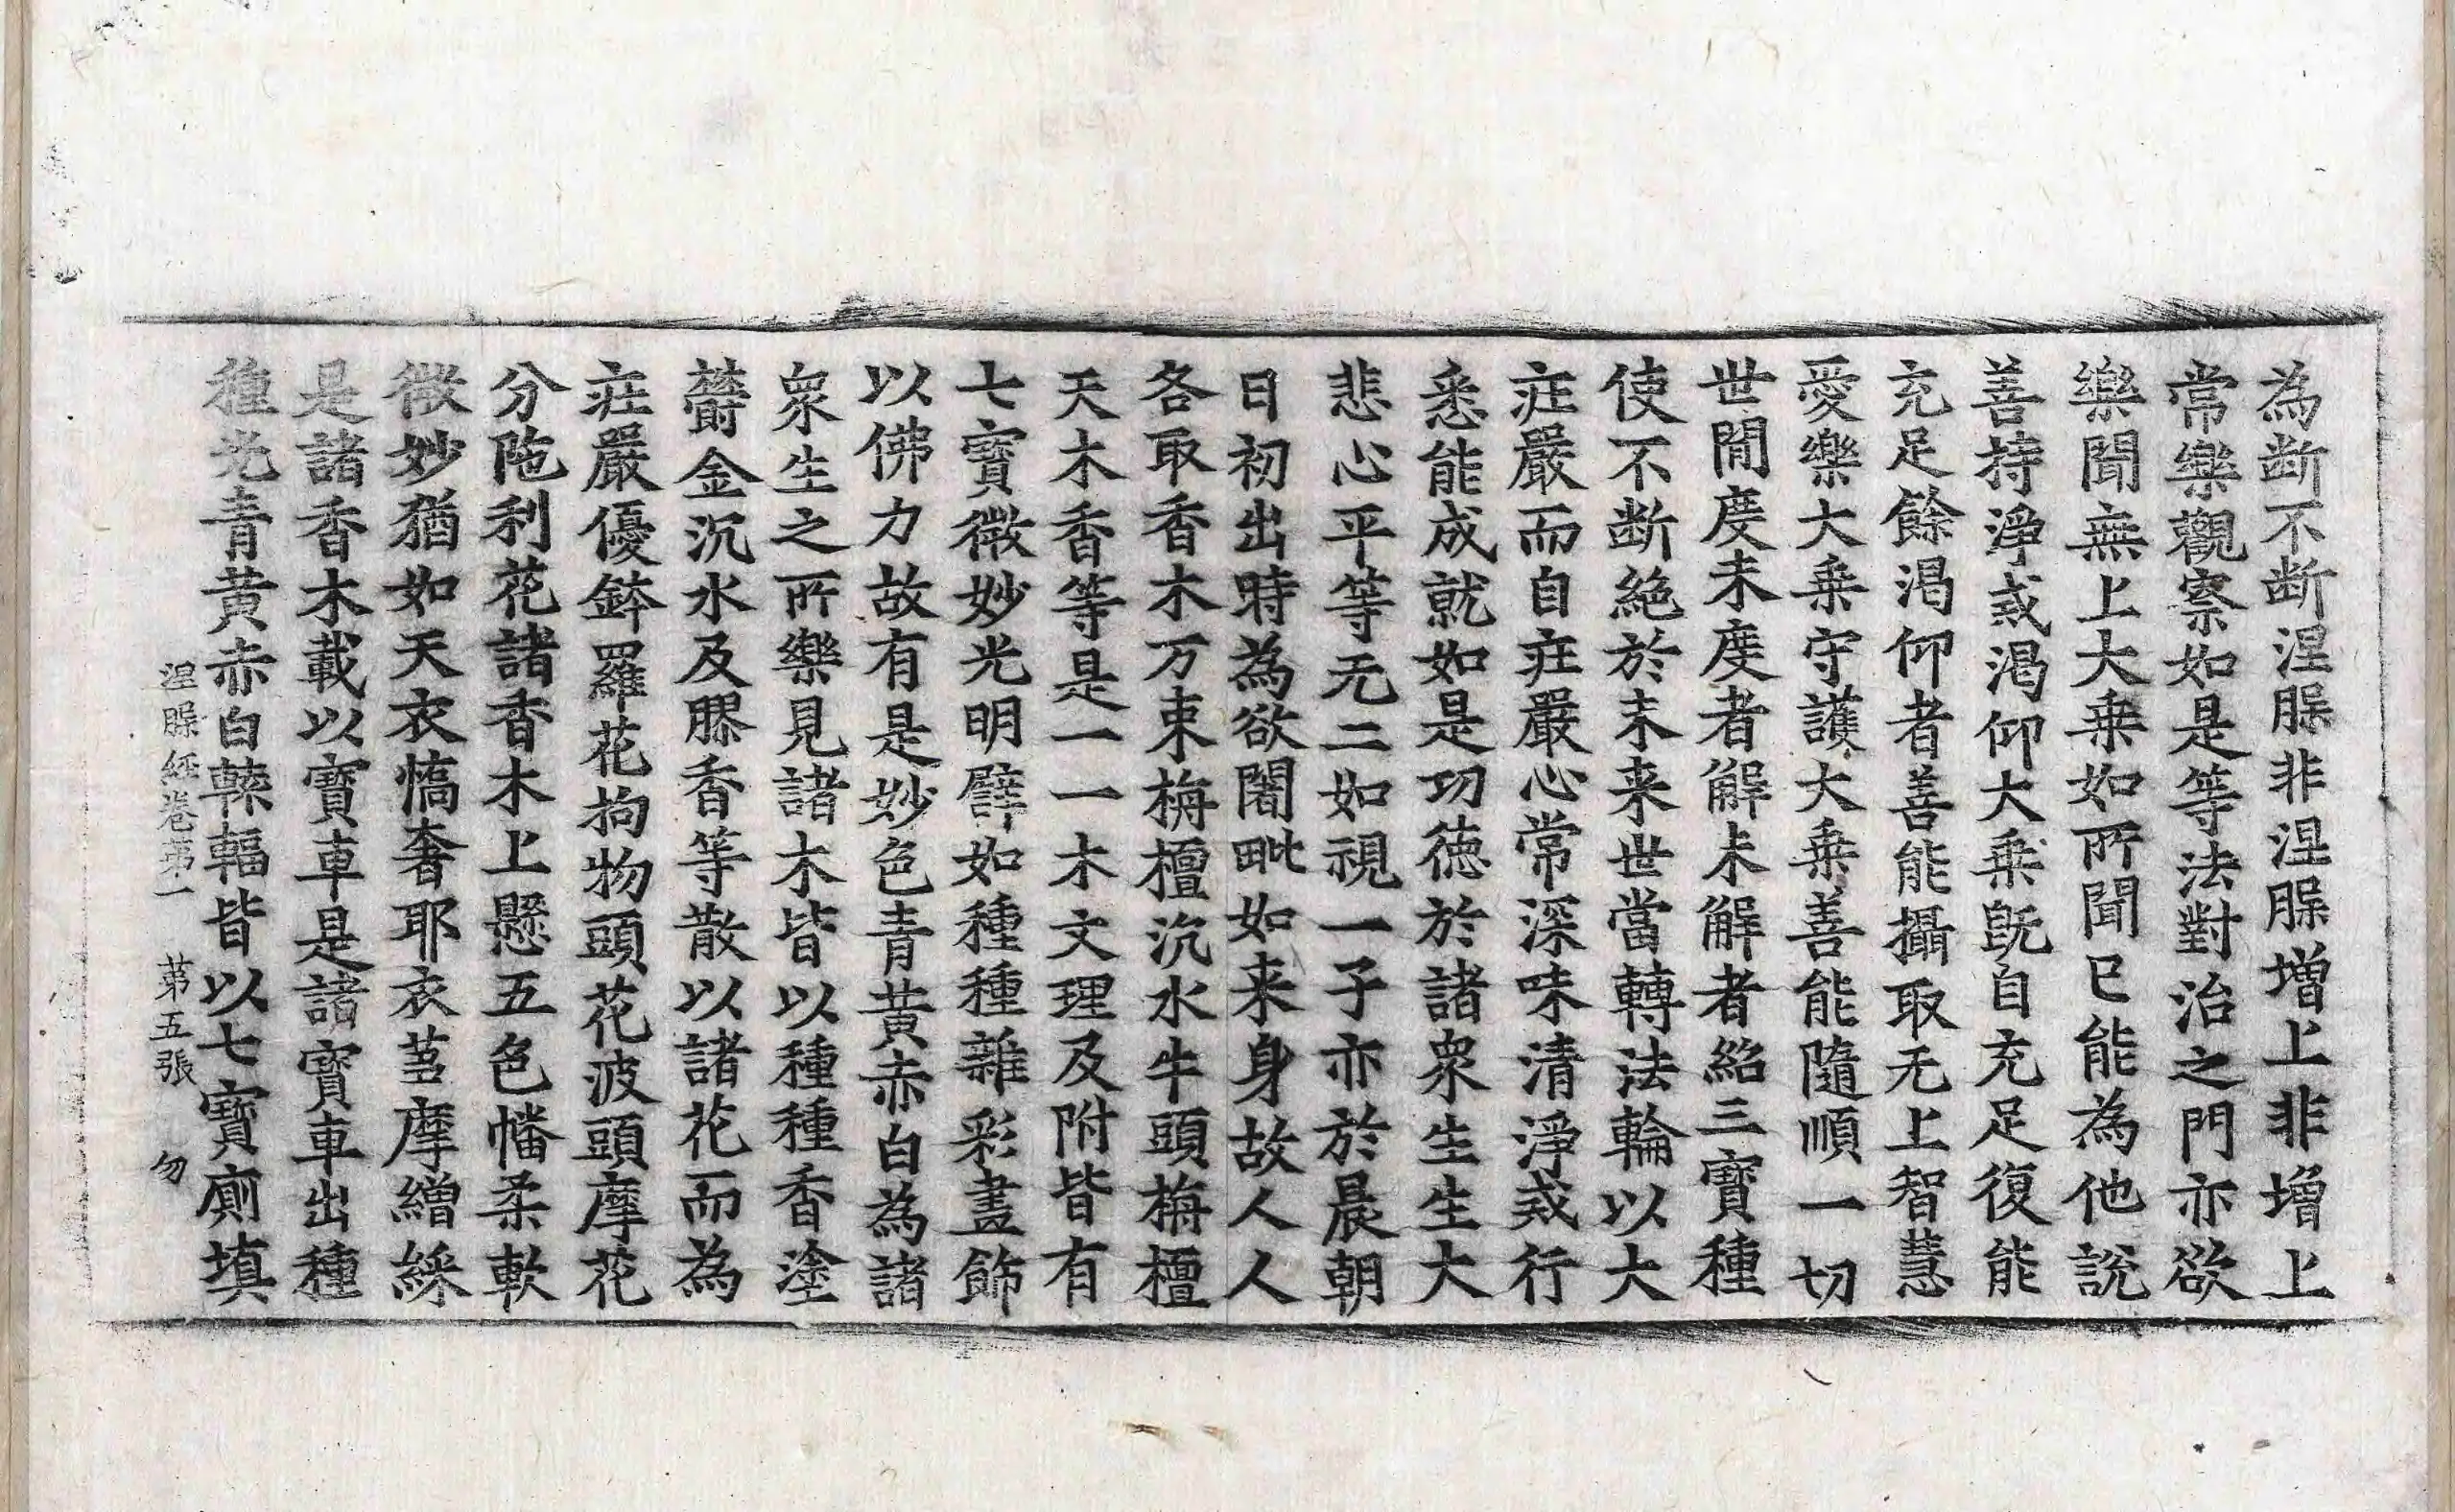 為断不断涅槃非涅槃增上非增上
常樂觀察如是等法對治之門亦欲
樂聞無上大乗如所聞已能為他說
善持淨戒渴仰大乗既自充足復能
充足餘渴仰者善能攝取无上智慧
愛樂大乗守護大乗善能隨順一切
世閒度未度者解未解者紹三寶種
使不断絶於未来世當轉法輪以大
莊嚴而自莊嚴心常深味清淨戒行
悉能成就如是功德於諸衆生生大
悲心平等无二如視一子亦於晨朝
日初出時為欲闍毗如来身故人人
各取香木万束栴檀沉水牛頭栴檀
天木香等是一一木文理及附皆有
七寶微妙光明譬如種種雜彩畫飾
以佛力故有是妙色青黃赤白為諸
衆生之所樂見諸木皆以種種香塗
欝金沉水及膠香等散以諸花而為
莊嚴優鉢羅花拘物頭花波頭摩花
分陁利花諸香木上懸五色幡柔軟
微妙猶如天衣憍奢耶衣蒭摩繒綵
是諸香木載以寶車是諸寶車出種
種光青黃赤白轅輻皆以七寶廁填
涅槃經卷第一 第五張 勿